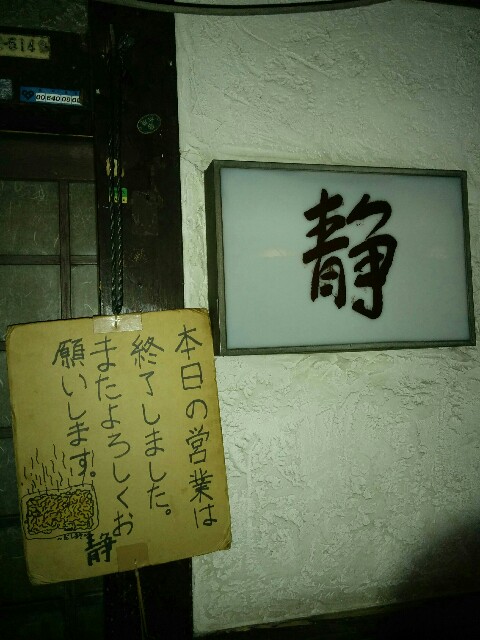 静
本日の営業は
終了しました。
またよろしくお
願いします。
静